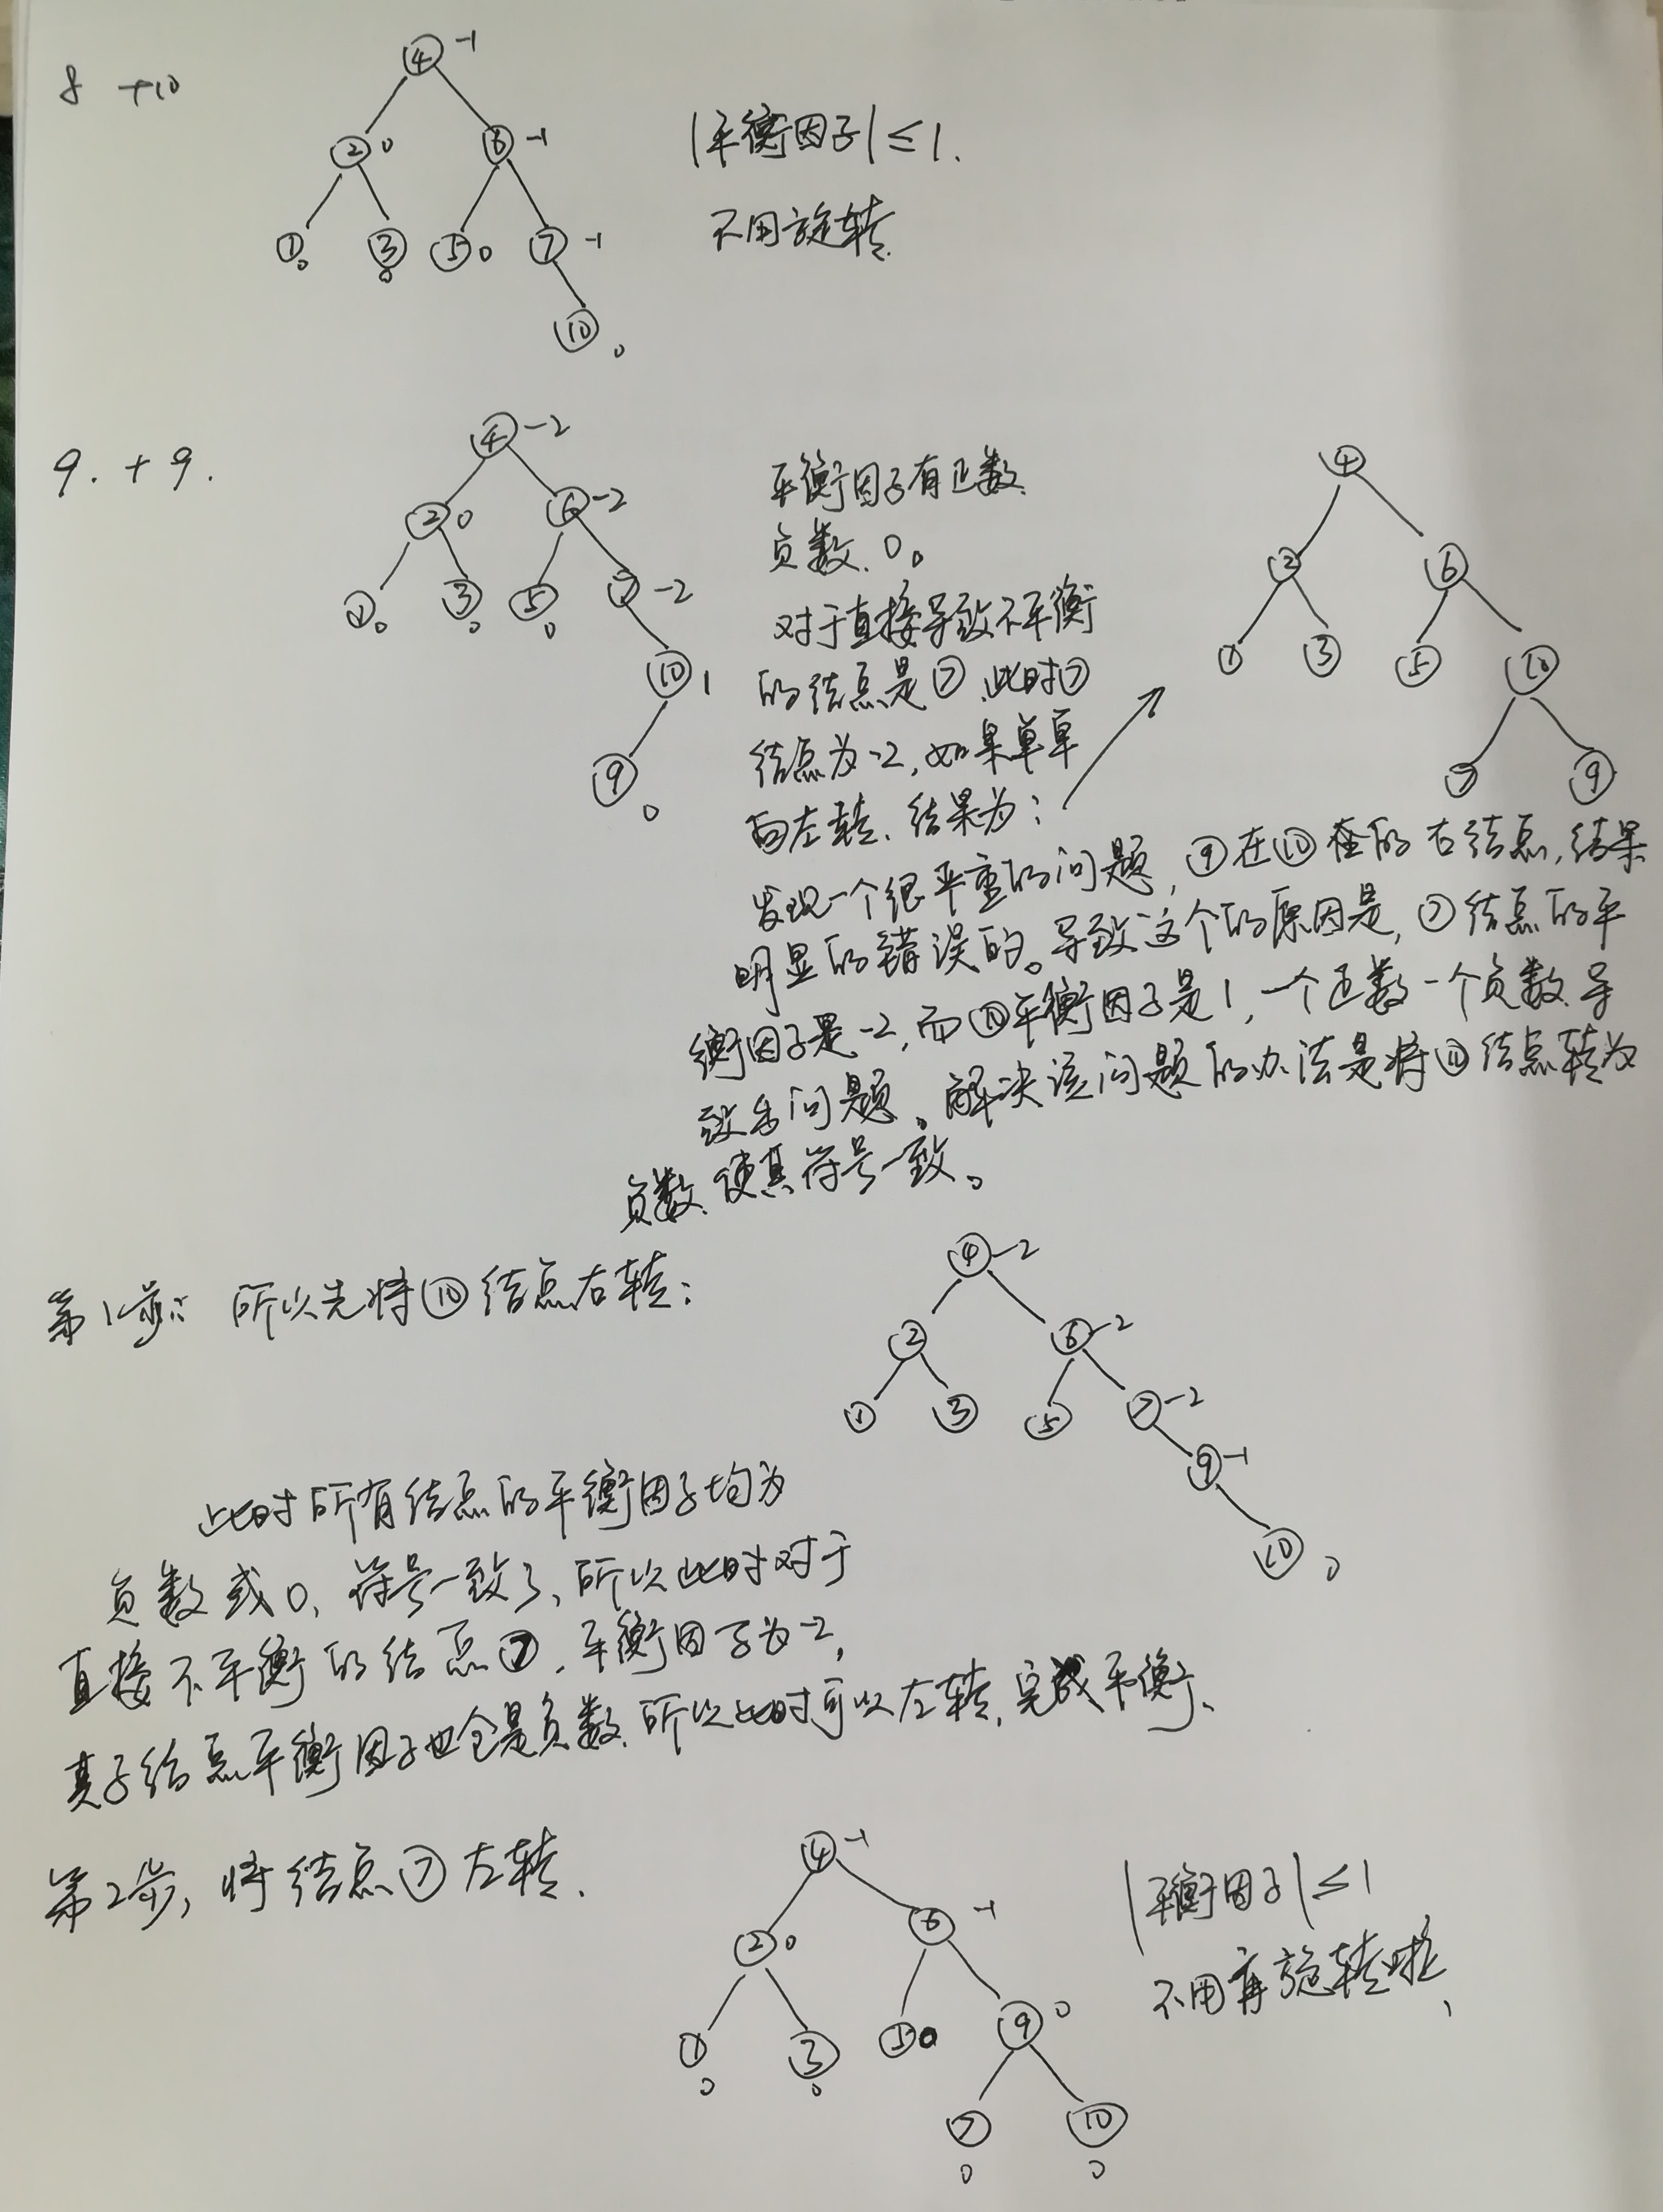 8 +10
④ -1
② 0 ⑥ -1
① 0 ③ 0 ⑤ 0 ⑦ -1
⑩ 0
|平衡因子|≤1.
不用旋转
9. +9.
④ -2
② 0 ⑥ -2
① 0 ③ 0 ⑤ 0 ⑦ -2
⑩ 1
⑨ 0
平衡因子有正数、
负数、0。
对于直接导致不平衡
的结点是⑦、此时⑦
结点为-2,如果单单
向左转、结果为:
④
② ⑥
① ③ ⑤ ⑩
⑦ ⑨
发现一个很严重的问题,⑨在⑩的右结点,结果
明显的错误的。导致这个的原因是,⑦结点的平
衡因子是-2,而⑩平衡因子是1,一个正数一个负数导
致出问题。解决该问题的办法是将⑩结点转为
负数、使其符号一致。
第1步: 所以先将⑩结点右转:
④ -2
② ⑥ -2
① ③ ⑤ ⑦ -2
⑨ -1
⑩ 0
此时所有结点的平衡因子均为
负数或0,符号一致了,所以此时对于
直接不平衡的结点⑦,平衡因子为-2,
其子结点平衡因子也全是负数、所以此时可以左转,完成平衡、
第2步,将结点⑦左转.
④ -1
② 0 ⑥ -1
① 0 ③ 0 ⑤ 0 ⑨ 0
⑦ 0 ⑩ 0
|平衡因子|≤1
不用再旋转啦、